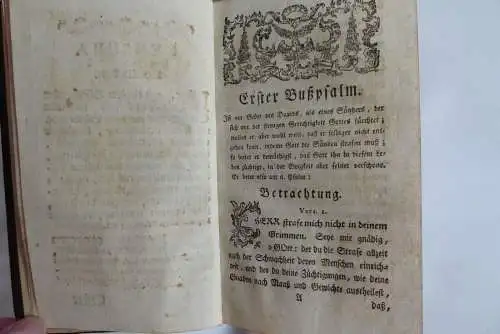 Erster Bußpsalm.
Ist ein Gebet des Davids, als eines Sünders, der
sich vor der strengen Gerechtigkeit Gottes fürchtet;
weilen er aber wohl weiß, daß er selbiger nicht ent-
gehen kann, indem Gott die Sünden strafen muß;
so bittet er demüthigst, daß Gott ihn in diesem Le-
ben züchtige, in der Ewigkeit aber seiner verschone.
Er betet also am 6. Psalm:
Betrachtung.
Vers. 1.
HERR strafe mich nicht in deinem
Grimmen. Seye mir gnädig,
GOtt: der du die Strafe allzeit
nach der Schwachheit deren Menschen einrich-
test, und der du deine Züchtigungen, wie deine
Gnaden nach Maaß und Gewichte austheilest,
A
daß,